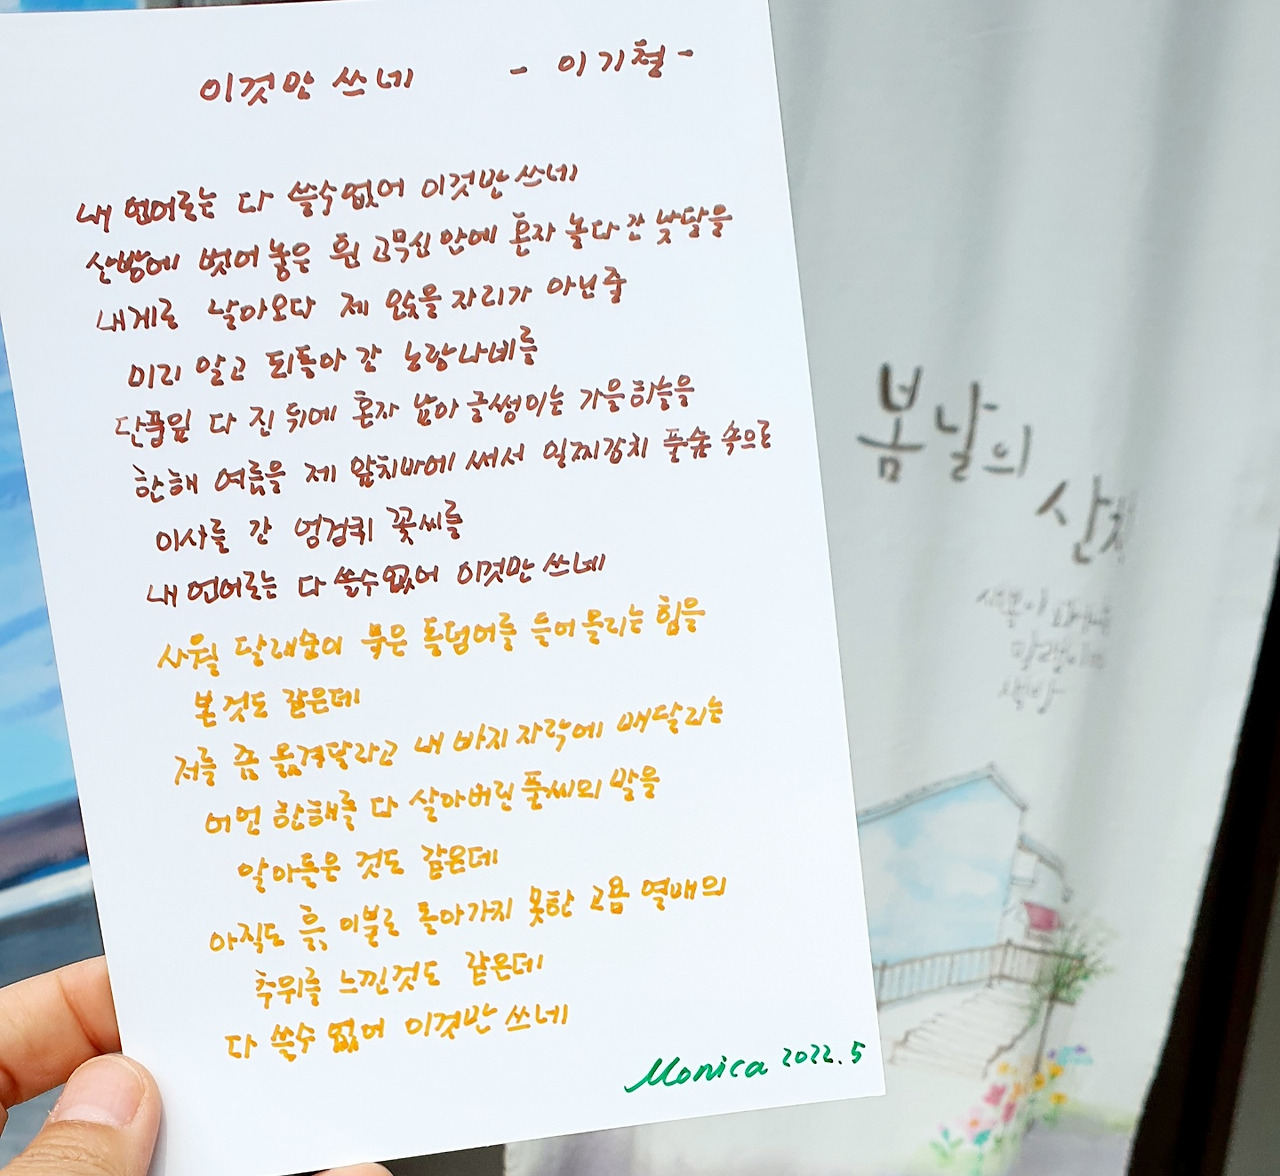 이것만 쓰네 - 이기철 -
내 언어로는 다 쓸수없어 이것만쓰네
산방에 벗어놓은 흰 고무신 안에 혼자 놀다 간 낮달을
내게로 날아오다 제 앉을 자리가 아닌줄
미리 알고 되돌아 간 노랑나비를
단풍잎 다 진 뒤에 혼자 남아 글썽이는 가을하늘을
한해 여름을 제 앞치마에 싸서 일찌감치 풀숲 속으로
이사를 간 엉겅퀴 꽃씨를
내 언어로는 다 쓸수없어 이것만 쓰네
사월 달래순이 묵은 돌덤어를 들어 올리는 힘을
본 것도 같은데
저를 좀 옮겨달라고 내 바지 자락에 매달리는
어언 한해를 다 살아버린 풀씨의 말을
알아들은 것도 같은데
아직도 흙, 이불로 돌아가지 못한 고욤 열매의
추위를 느낀것도 같은데
다 쓸수 없어 이것만 쓰네
Monica 2022.5
봄날의
책방